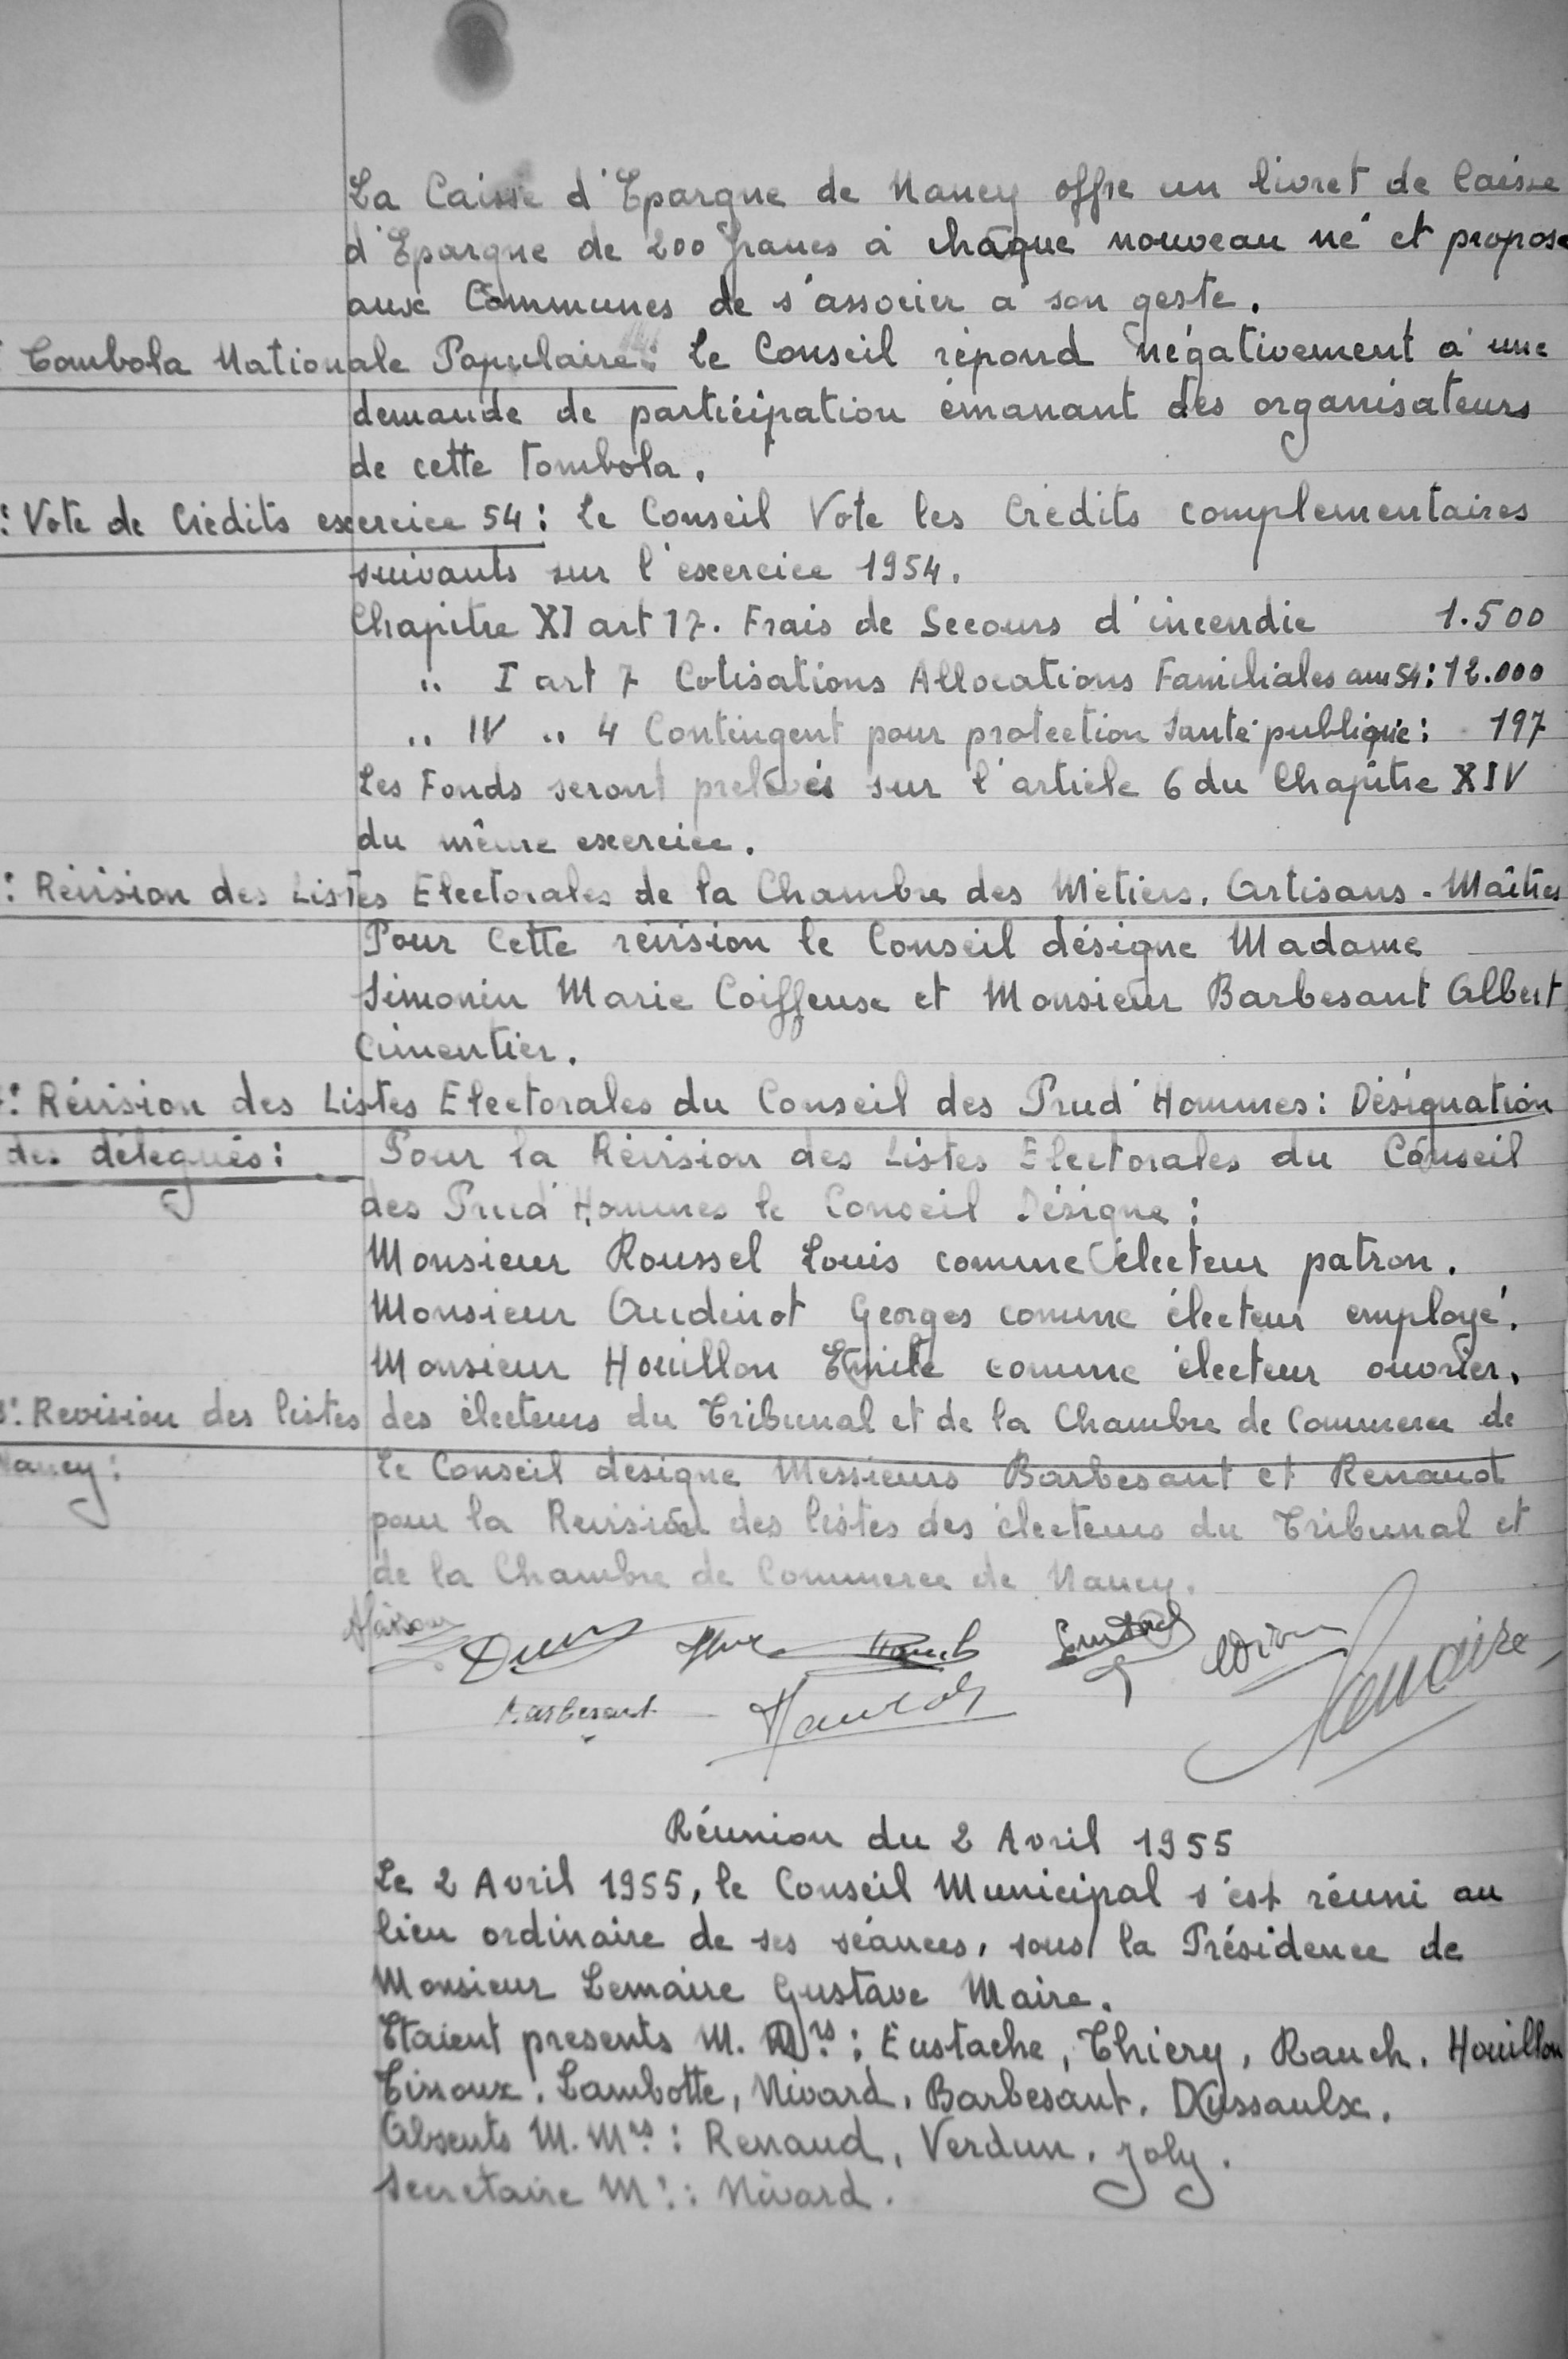 La Caisse d'Epargne de Nancy offre un livret de Caisse
d'Epargne de 200 francs à chaque nouveau né et propose
aux Communes de s'associer à son geste.
Tombola Nationale Populaire: Le Conseil répond négativement à une
demande de participation émanant des organisateurs
de cette tombola.
: Vote de Crédits exercice 54: Le Conseil Vote les Crédits complementaires
suivants sur l'exercice 1954.
Chapitre XI art 17. Frais de Secours d'incendie 1.500
" I art 7 Cotisations Allocations Familiales ann 54: 12.000
" IV " 4 Contingent pour protection Santé publique: 197
Les Fonds seront prelévés sur l'article 6 du Chapitre XIV
du même exercice.
: Révision des Listes Electorales de la Chambre des Métiers. Artisans - Maîtres
Pour Cette révision le Conseil désigne Madame
Simonin Marie Coiffeuse et Monsieur Barbesant Albert
Cimentier.
: Révision des Listes Electorales du Conseil des Prud'Hommes: Désignation
des délégués: Pour la Révision des Listes Electorales du Conseil
des Prud'Hommes le Conseil Désigne:
Monsieur Roussel Louis comme électeur patron.
Monsieur Audinot Georges comme électeur employé.
Monsieur Houillon Emile comme électeur ouvrier.
: Revision des listes des électeurs du Tribunal et de la Chambre de Commerce de
Nancy: Le Conseil désigne Messieurs Barbesant et Renaud
pour la Revision des listes des électeurs du Tribunal et
de la Chambre de Commerce de Nancy.
Rauch
Barbesant
Lemaire
Réunion du 2 Avril 1955
Le 2 Avril 1955, le Conseil Municipal s'est réuni au
lieu ordinaire de ses séances, sous la Présidence de
Monsieur Lemaire Gustave Maire.
Etaient presents M. Mrs: Eustache, Thiery, Rauch, Houillon
Tissoux, Lambotte, Nivard, Barbesant, Dussaulx.
Absents M. Mrs: Renaud, Verdun, Joly.
Secretaire Mr: Nivard.